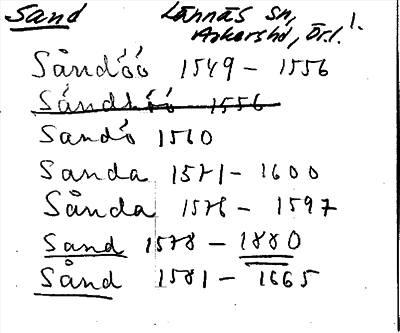 Sand Lännäs sn,
Askers hd, Ör.l.
Såndöö 1549 - 1556
Sandöö 1556
Sandö 1560
Sanda 1571 - 1600
Sånda 1578 - 1597
Sand 1578 - 1880
Sånd 1581 - 1665